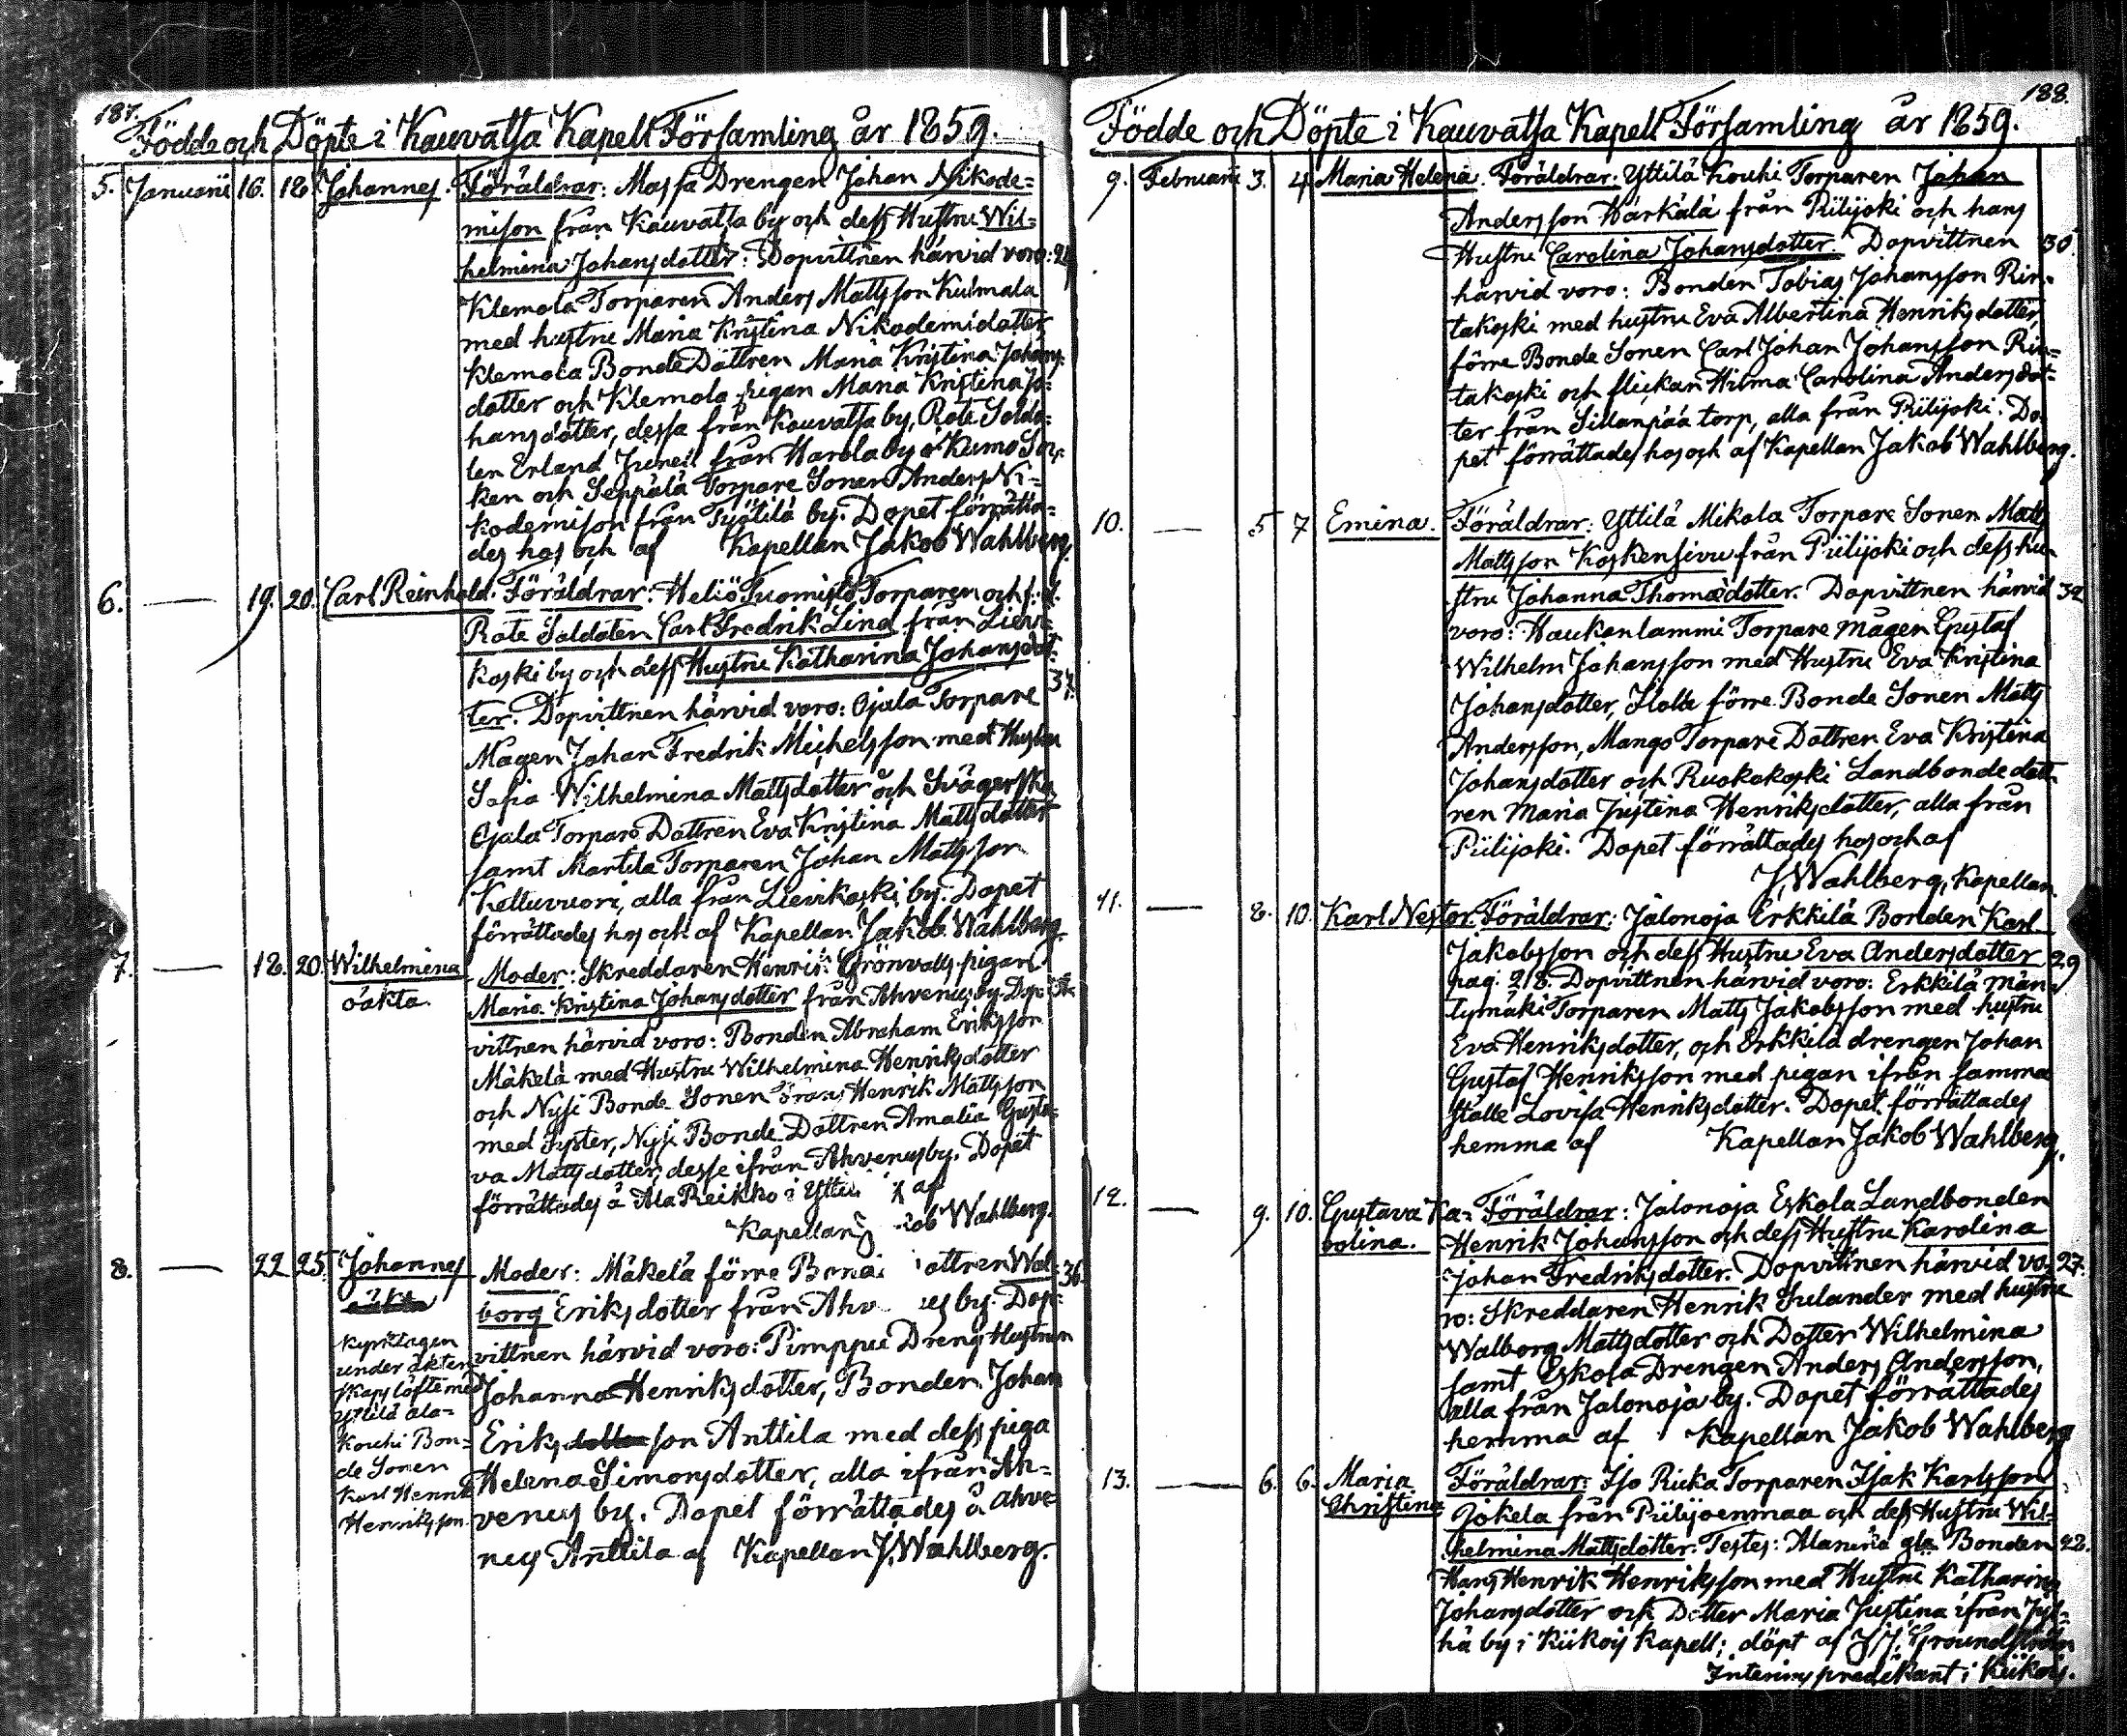 187.
Födde och Döpte i Kauvatsa Kapell Församling år 1859.
5. Januarii 16. 18 Johannes. Föräldrar: Massa Drengen Johan Nikode=
mison från Kauvatsa by och dess Hustru Wil=
helmina Johansdotter: Dopvittnen härvid voro:
Klemola Torparen Anders Mattsson Kulmala
med hustru Maria Kristina Nikodemidotter,
Klemola Bonde Dottren Maria Kristina Johans=
dotter och Klemola pigan Maria Kristina Jo=
hansdotter, dessa från Kauvatsa by, Rote Solda=
ten Erland Juneil från Harola by i Kumo Soc=
ken och Seppälä Torpare Sonen Anders Ni=
kodemison från Tyttilä by. Dopet förrätta=
des hos och af Kapellan Jakob Wahlberg.
6. — 19. 20. Carl Reinhold. Föräldrar: Heliö Tuomisto Torparen och f. d.
Rote Soldaten Carl Fredrik Lind från Lievi=
koski by och dess Hustru Katharina Johansdot=
37.
ter. Dopvittnen härvid voro: Ojala Torpare
Mågen Johan Fredrik Michelsson med Hustru
Sofia Wilhelmina Mattsdotter och Svägerska
Ojala Torpare Dottren Eva Kristina Mattsdotter
samt Martila Torparen Johan Mattsson
Kelluvuori, alla från Lievikoski by. Dopet
förrättades hos och af Kapellan Jakob Wahlberg.
7. — 18. 20. Wilhelmina Moder: Skreddaren Henrik Grönvalls pigan
oäkta. Maria Kristina Johansdotter från Ahvenus by. Dop=
vittnen härvid voro: Bonden Abraham Eriksson
Mäkelä med Hustru Wilhelmina Henriksdotter
och Nysi Bonde Sonen Frans Henrik Mattsson
med Syster, Nysi Bonde Dottren Amalia Gusta=
va Mattsdotter, desse ifrån Ahvenus by. Dopet
förrättades å Ala Reikko i Ytti af
Kapellan J ob Wahlberg.
8. — 22 25. Johannes Moder: Mäkelä förre Bond ottren Wal= 36
oäkta borg Eriksdotter från Ahv us by. Dop=
Kyrktagen vittnen härvid voro: Pimppu Dreng Hustrun
under äkten
skaps löfte med Johanna Henriksdotter, Bonden Johan
Yttilä Ala=
Kouhi Bon= Eriksdotter son Anttila med dess piga
de Sonen
Karl Henrik Helena Simonsdotter, alla ifrån Ah=
Henriksson. venus by. Dopet förrättades å Ahve=
nus Anttila af Kapellan J. Wahlberg.
188.
Födde och Döpte i Kauvatsa Kapell Församling år 1859.
9. Februarii 3. 4. Maria Helena. Föräldrar: Yttilä Kouhi Torparen Johan
Andersson Härkälä från Piilijoki och hans
Hustru Carolina Johansdotter. Dopvittnen 30.
härvid voro: Bonden Tobias Johansson Rin=
takoski med hustru Eva Albertina Henriksdotter,
förre Bonde Sonen Carl Johan Johansson Rin=
takoski och flickan Hilma Carolina Andersdot=
ter från Sillanpää torp, alla från Piilijoki. Do=
pet förrättades hos och af Kapellan Jakob Wahlberg.
10. — 5 7 Emina. Föräldrar: Yttilä Mikola Torpare Sonen Matts
Mattsson Koskensivu från Piilijoki och dess hu=
stru Johanna Thomædotter. Dopvittnen härvid 32
voro: Haukanlammi Torpare Mågen Gustaf
Wilhelm Johansson med Hustru Eva Kristina
Johansdotter, Holle förre Bonde Sonen Matts
Andersson, Mango Torpare Dottren Eva Kristina
Johansdotter och Ruokakoski Landbonde dott=
ren Maria Justina Henriksdotter, alla från
Piilijoki. Dopet förrättades hos och af
J. Wahlberg, Kapellan.
11. — 8. 10. Karl Nestor. Föräldrar: Jalonoja Erkkilä Bonden Karl
Jakobsson och dess Hustru Eva Andersdotter 29
pag. 218. Dopvittnen härvid voro: Erkkilä män=
tymäki Torparen Matts Jakobsson med hustru
Eva Henriksdotter, och Erkkilä drengen Johan
Gustaf Henriksson med pigan ifrån samma
ställe Lovisa Henriksdotter. Dopet förrättades
hemma af Kapellan Jakob Wahlberg.
12. — 9. 10. Gustava Ka= Föräldrar: Jalonoja Eskola Landbonden
rolina. Henrik Johansson och dess Hustru Karolina
Johan Fredriksdotter. Dopvittnen härvid vo= 27.
ro: Skreddaren Henrik Sulander med hustru
Walborg Mattsdotter och Dotter Wilhelmina
samt Eskola Drengen Anders Andersson,
alla från Jalonoja by. Dopet förrättades
hemma af Kapellan Jakob Wahlberg
13. — 6. 6. Maria Föräldrar: Iso Rieka Torparen Isak Karlsson
Christina Jokela från Piilijoenmaa och dess Hustru Wil=
helmina Mattsdotter. Testes: Alaneva gla Bonden 22.
Hans Henrik Henriksson med Hustru Katharina
Johansdotter och Dotter Maria Justina ifrån Jyl=
hä by i Kiikois Kapell; döpt af J. J. Groundström
Interims predikant i Kiikois.